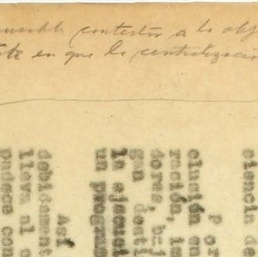 contestar a la obj
en que la centralizació
ciencia de
Por
clusión en
ración, i
dores, baj
gan desti
la ejecuci
un program
Así
debidament
lleva al c
padece con